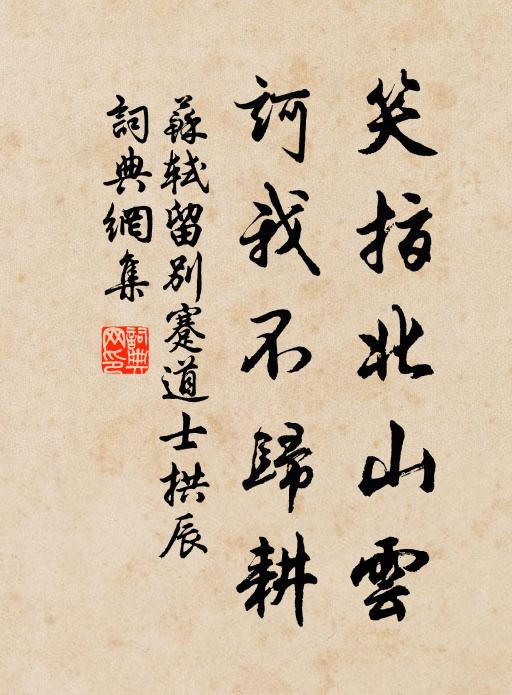 笑指北山雲
訶我不歸耕
蘇軾留別蹇道士拱辰
詞典網集
詞典
网印